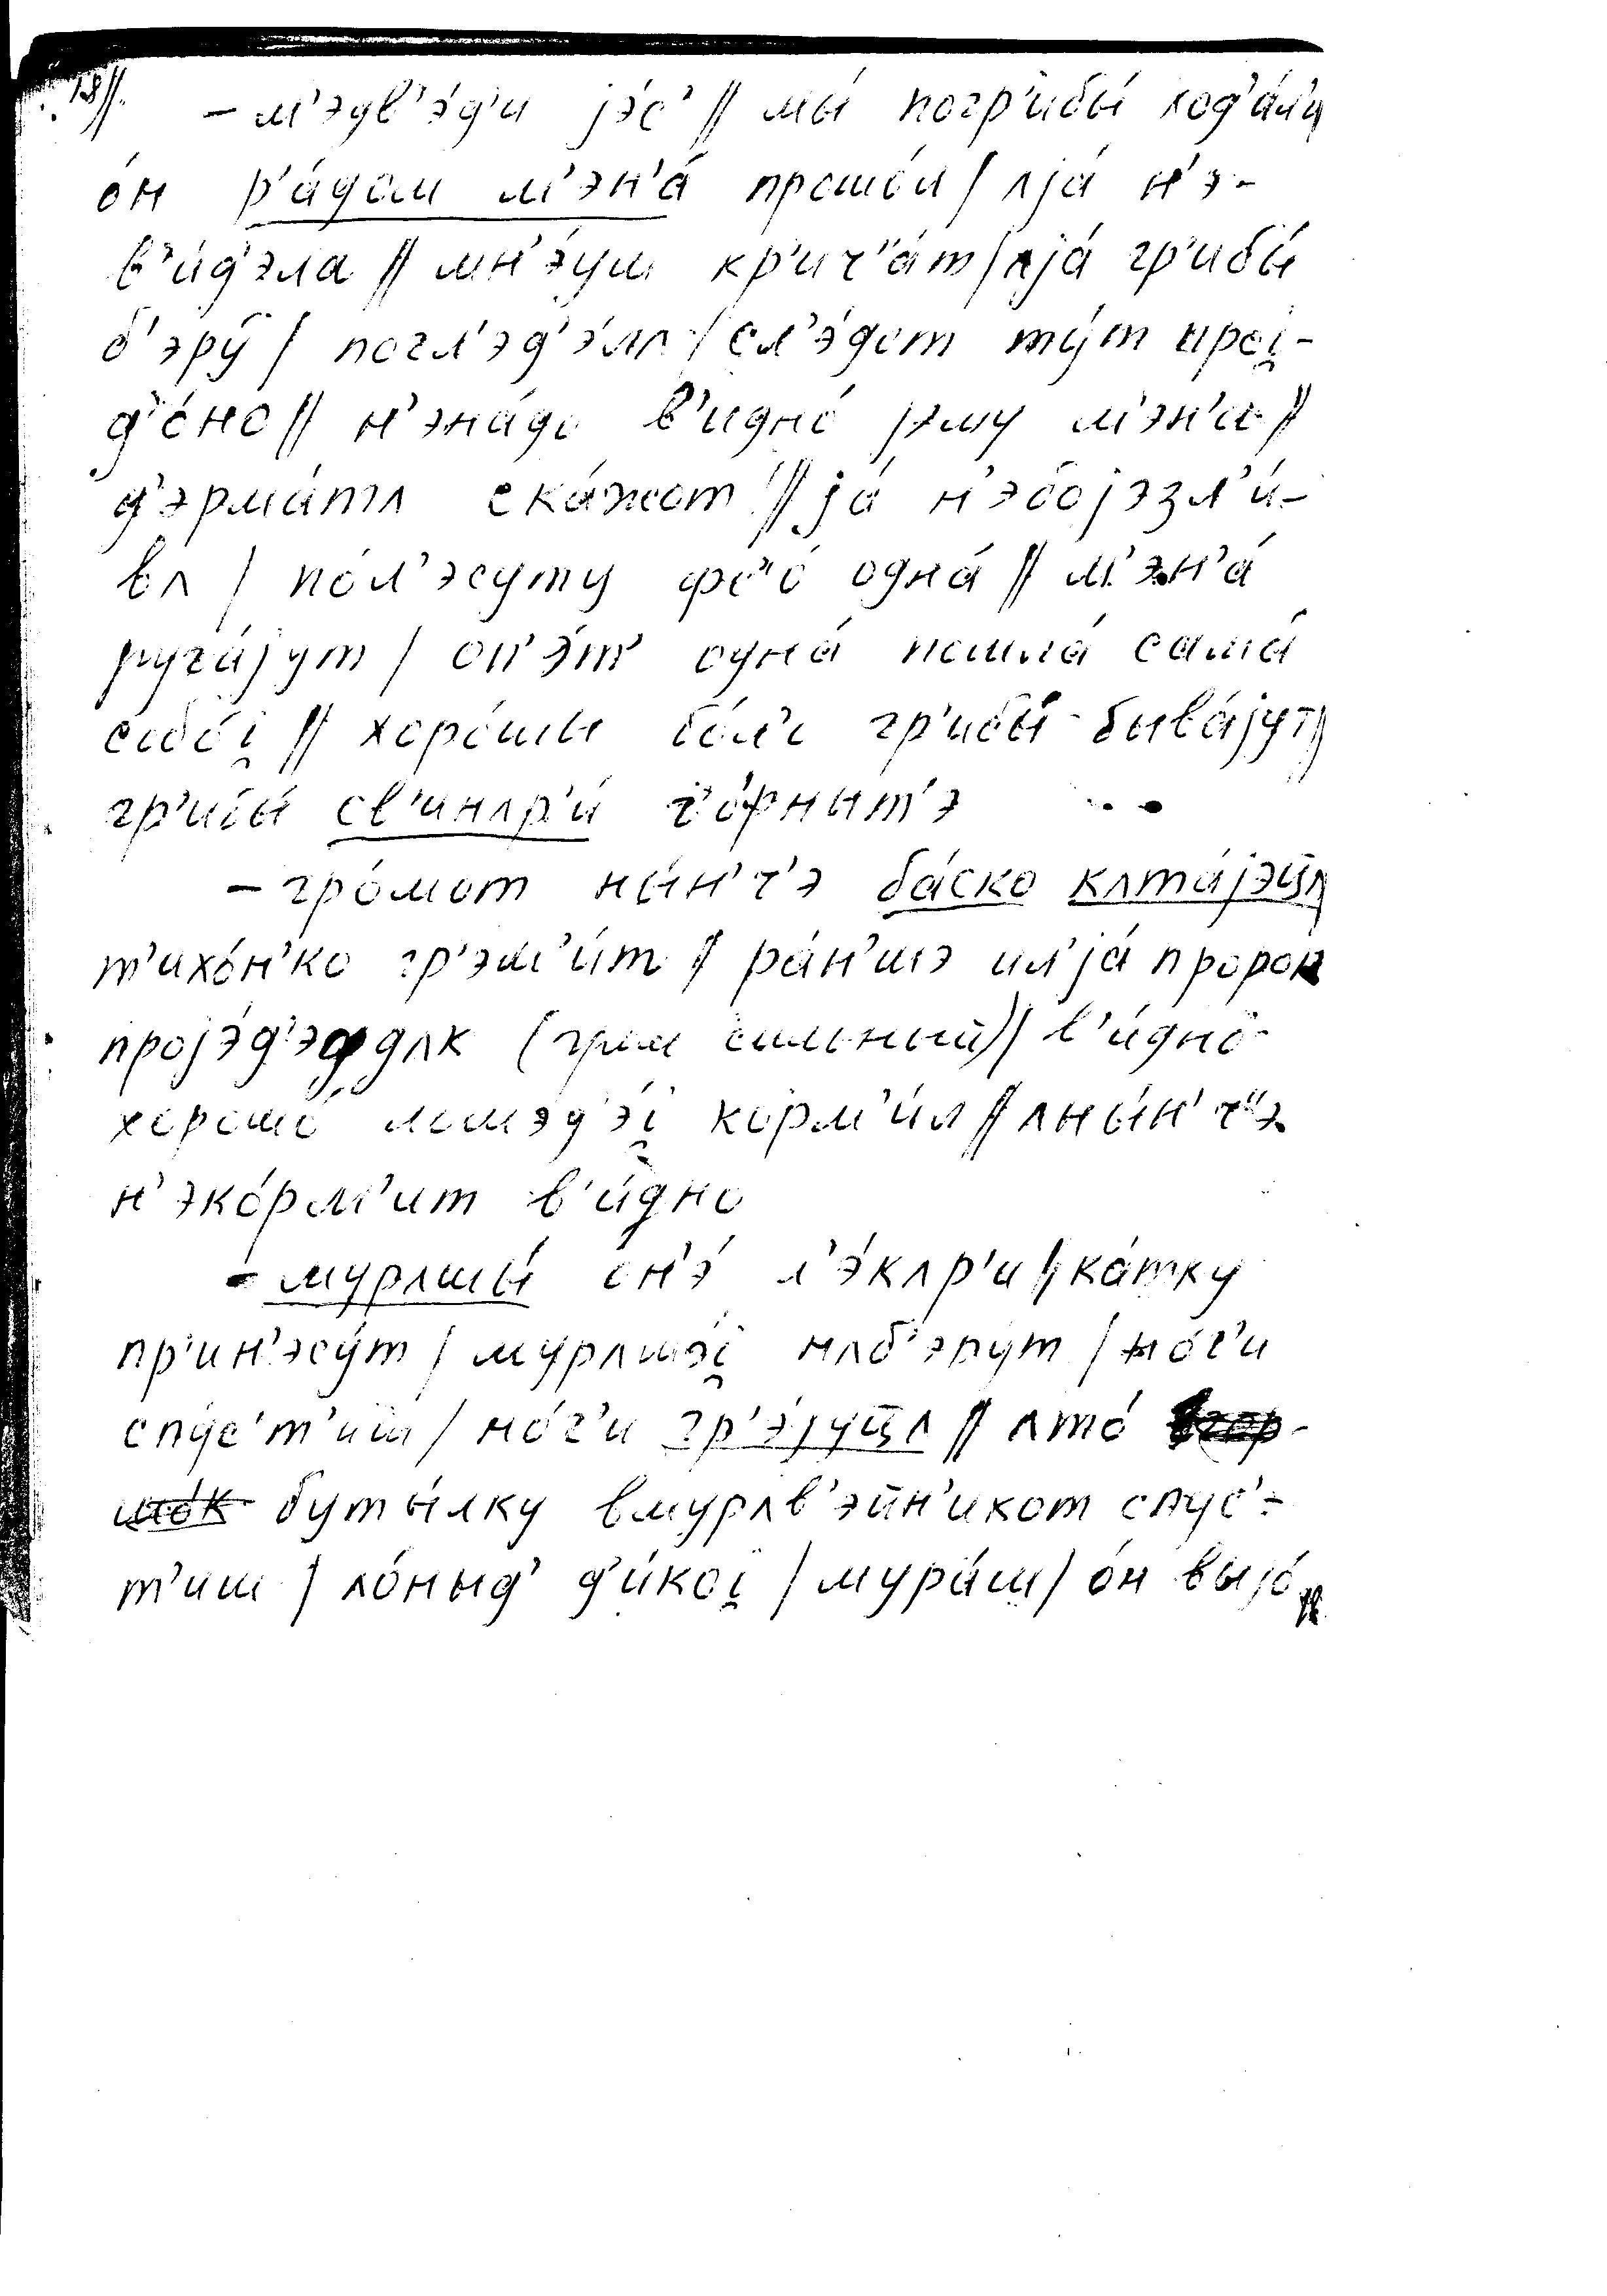 18//. – м'эдв'э́д'и јэ́с' // мы́ погр'ибы́ ход'а́л'и
о́н р'а́дом м'эн'а́ прошо́л / ʌја́ н'э-
в'и́д'эла // мн'э́уш кр'ич''а́т / ʌја́ гр'ибы́
б'эру́ / погл'эд'э́лʌ / сл'э́дот ту́т проi̯-
д'о́но // н'эна́до в'идно́ јэму м'эн'а //
д'эрма́тʌ ска́жот // ја́ н'эбојэзл'и́-
вʌ / по́л'эсуту фс''о́ одна́ // м'эн'а́
руга́јут / оп'э́т' одна́ пошла́ сама́
собо́i̯ // хоро́шы бо́л'о гр'ибы́ быва́јут //
гр'ибы́ св'инʌр'и́ ч'о́рныт'э
– гро́мот ны́н'ч'э ба́ско кʌта́јэц̄ʌ
т'ихо́н'ко гр'эм'и́т / ра́н'шэ ил'ја́ пророк
пројэ́д'эфдʌк (гром сильный) // в'и́дно
хорошо́ лошэд'э́i̯ корм'и́л // ʌны́н'ч''э
н'эко́рм'ит в'и́дно
– мурʌшы́ он'э́ л'э́кʌр'и // ка́тку
пр'ин'эсу́т / мурʌшэ́i̯ нʌб'эру́т / но́г'и
спу́с'т'иш / но́г'и гр'э́јуц̄ʌ // ʌто́ вгор-
шо́к буты́лку вмурʌв'эйн'икот спус'-
т'иш / ло́ныд' д'и́коi̯ / мура́ш / о́н выјо́